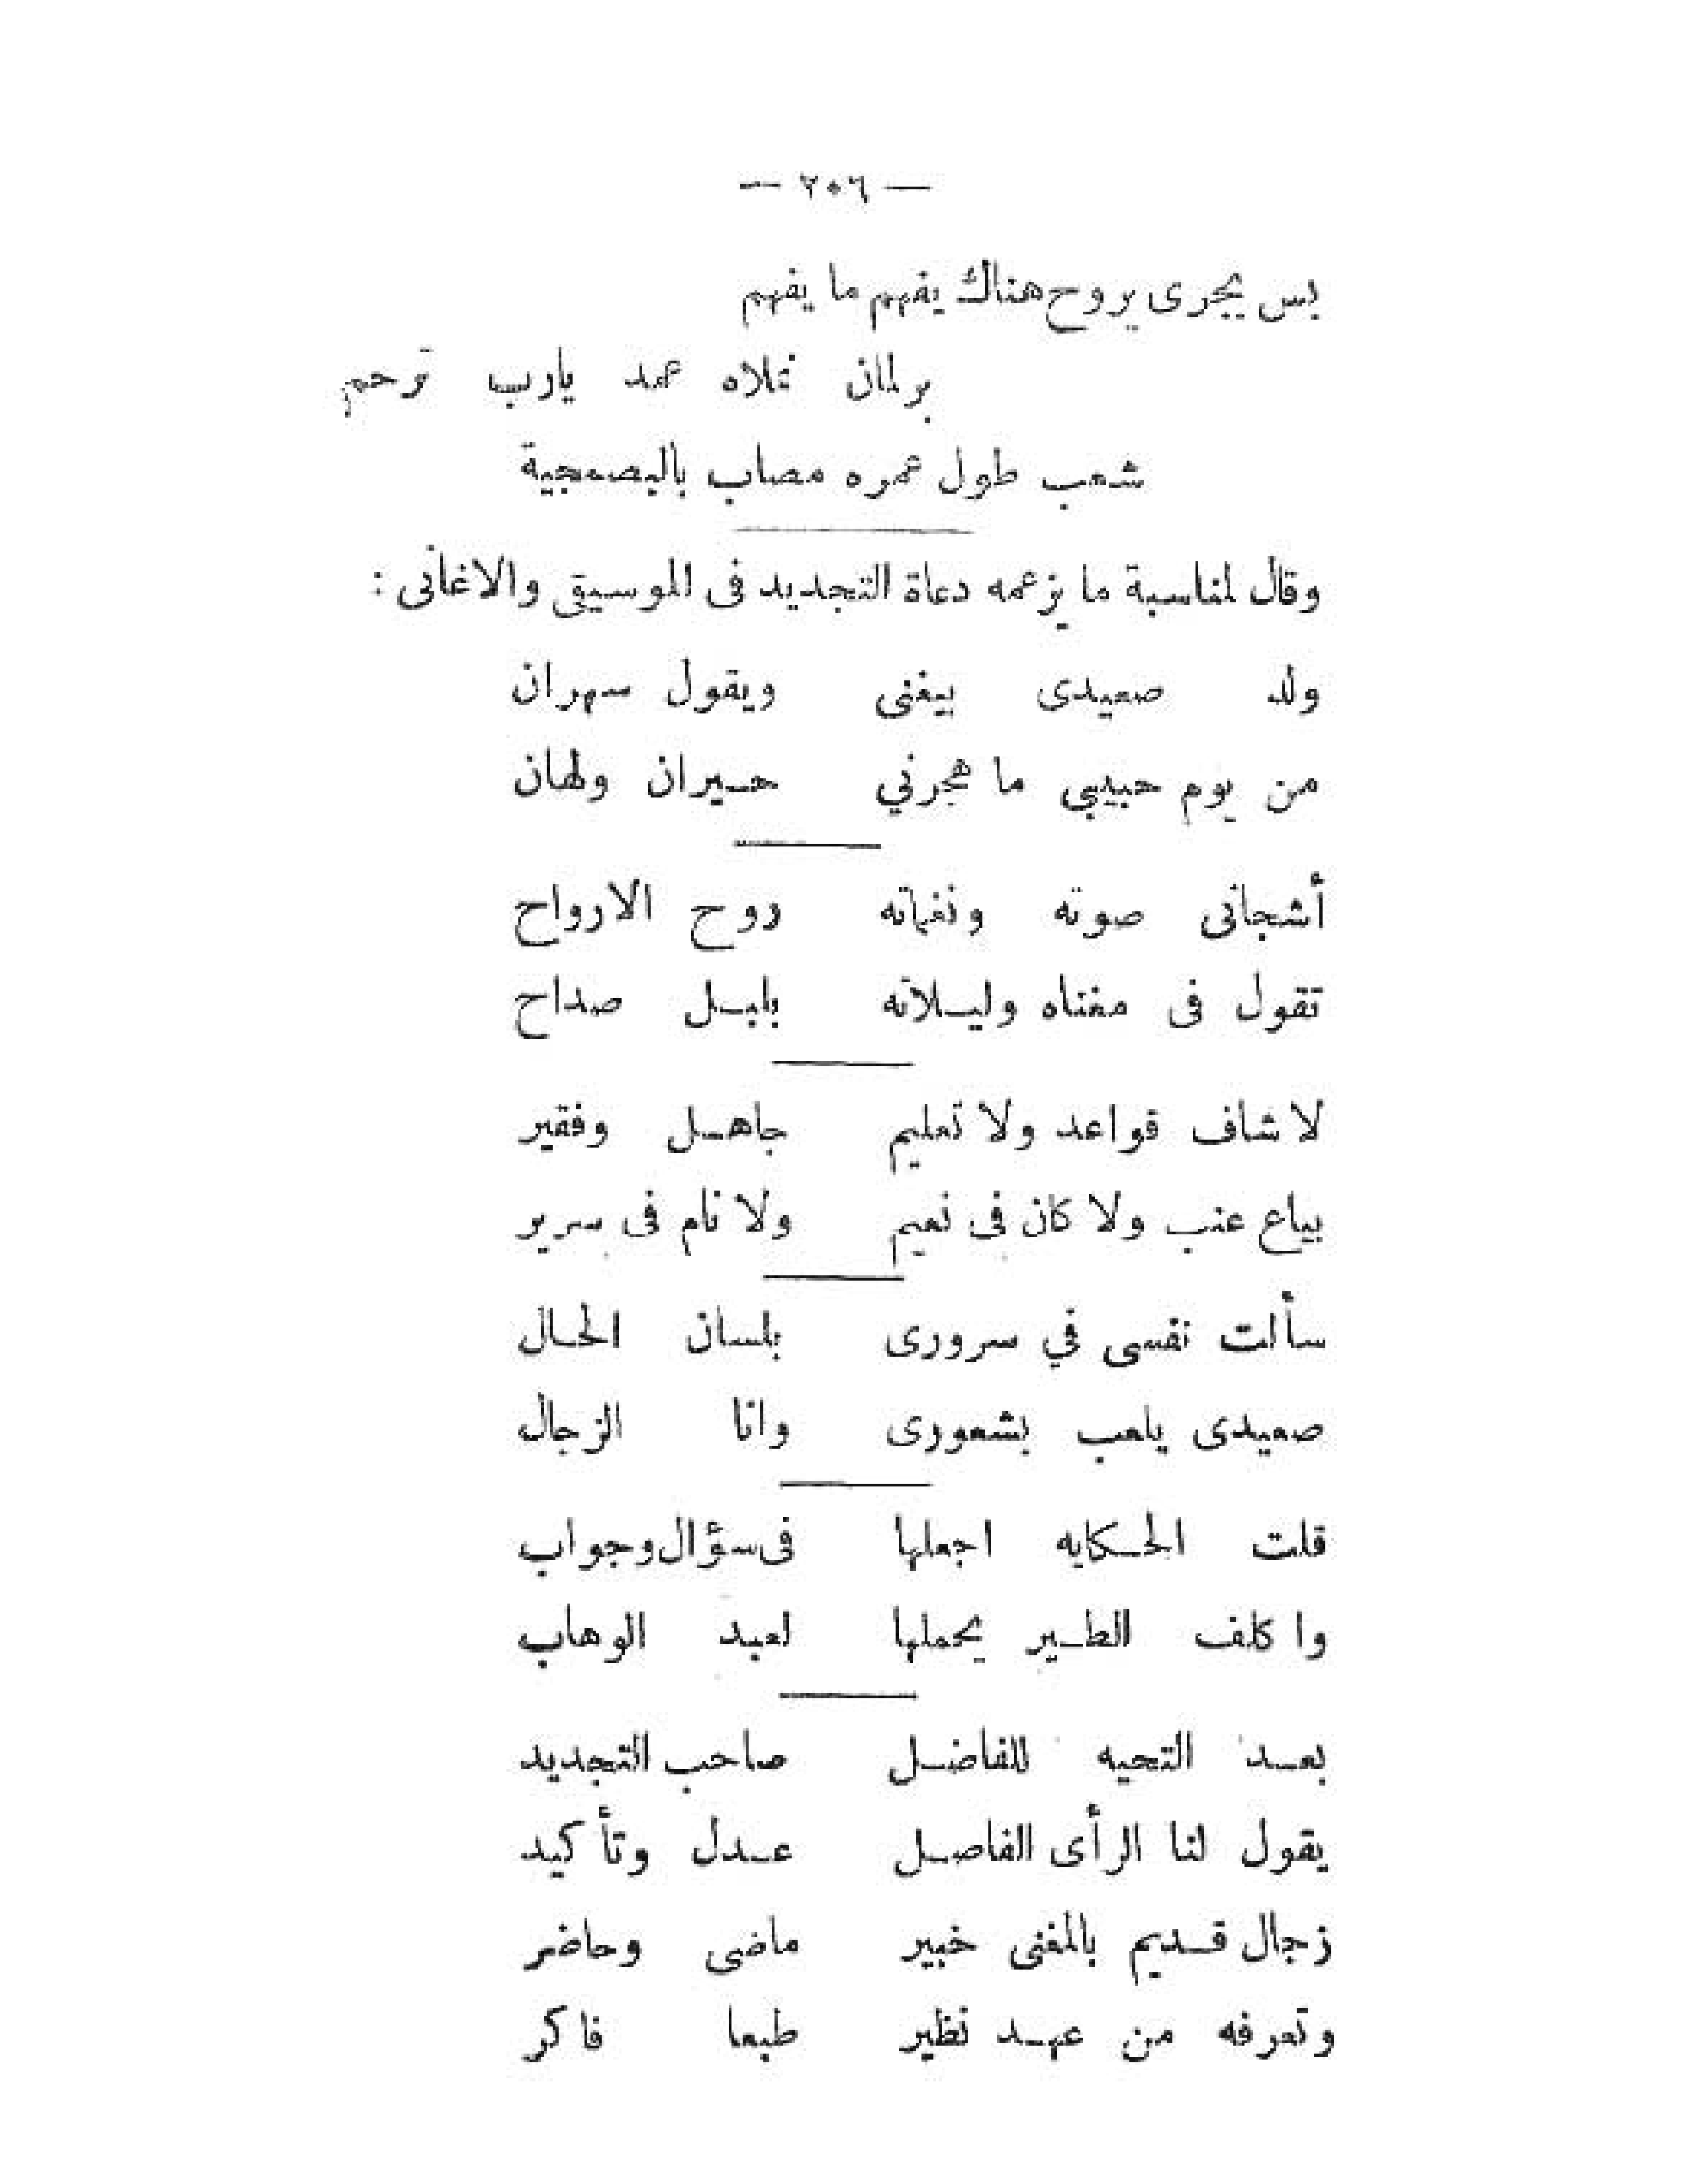 — ٢٠٦ —
بس يجرى يروح هناك يفهم ما يفهم
برلمان تلاه عمد يارب ترحم
شعب طول عمره مصاب بالبصمجية
وقال لمناسبة ما يزعمه دعاة التجديد فى الموسيقى والاغانى :
ولد صعيدى بيغنى ويقول سهران
من يوم حبيبى ما هجرني حـيران ولهان
أشجانى صوته ونغماته روح الارواح
تقول فى مغناه وليـلاته بلبـل صداح
لا شاف قواعد ولا تعليم جاهـل وفقير
بياع عنب ولا كان فى نعيم ولا نام فى سرير
سألت نفسى في سرورى بلسان الحـال
صعيدى يلعب بشعورى وانا الزجال
قلت الحـكايه اجعلها فى سؤال وجواب
واكلف الطـير يحملها لعبد الوهاب
بعـد التحيه للفاضـل صاحب التجديد
يقول لنا الرأى الفاصـل عـدل وتأكيد
زجال قـديم بالمغنى خبير ماضى وحاضر
وتعرفه من عهـد نظير طبعا فاكر